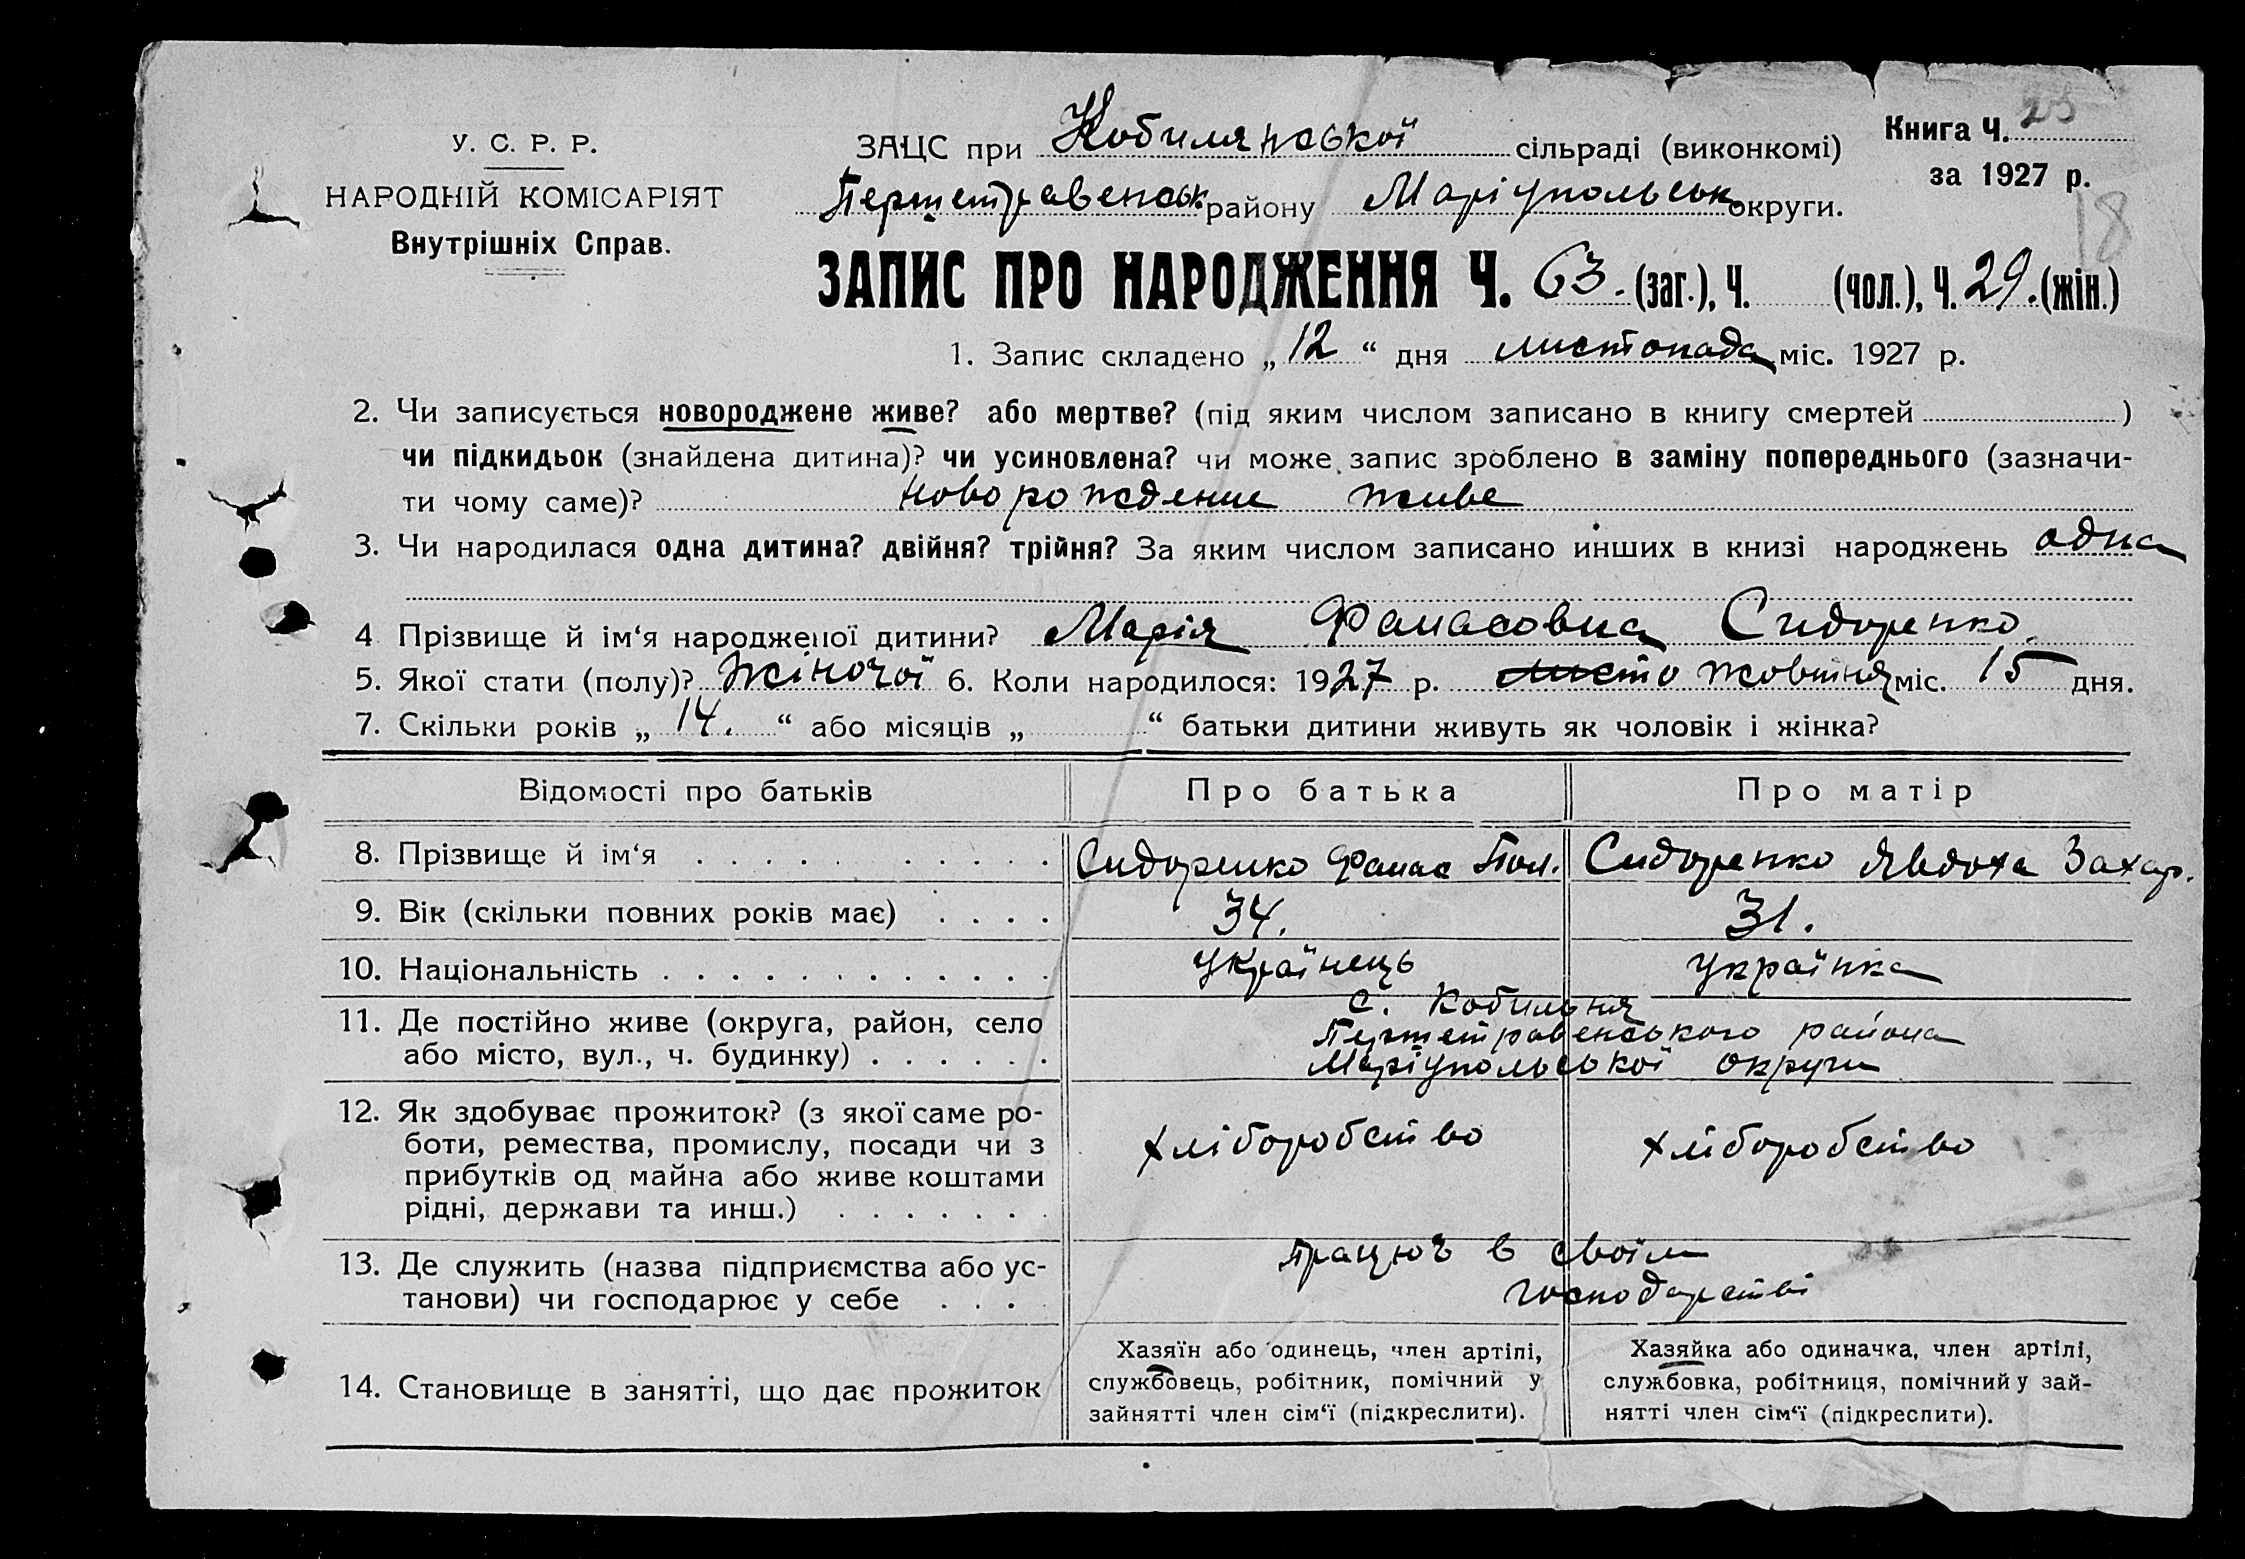 У. С. Р. Р.
НАРОДНІЙ КОМІСАРІЯТ
Внутрішніх Справ.
ЗАЦС при Кобилянської сільраді (виконкомі)
Першетравенськ району Маріупольськ округи.
Книга Ч. 23
за 1927 р.
18
ЗАПИС ПРО НАРОДЖЕННЯ Ч. 63. (заг.), Ч. (чол.), Ч. 29. (жін.)
1. Запис складено „ 12 “ дня листопада міс. 1927 р.
2. Чи записується новороджене живе? або мертве? (під яким числом записано в книгу смертей )
чи підкидьок (знайдена дитина)? чи усиновлена? чи може запис зроблено в заміну попереднього (зазначи-
ти чому саме)? новорождение живе
3. Чи народилася одна дитина? двійня? трійня? За яким числом записано инших в книзі народжень одна
4 Прізвище й ім‘я народженої дитини? Марія Фанасовна Сидоренко.
5. Якої стати (полу)? Жіночої 6. Коли народилося: 1927 р. листо жовтня міс. 15 дня.
7. Скільки років „ 14. “ або місяців „ “ батьки дитини живуть як чоловік і жінка?
Відомості про батьків Про батька Про матір
8. Прізвище й ім‘я Сидоренко Фанас Пол. Сидоренко Явдоха Захар.
9. Вік (скільки повних років має) 34. 31.
10. Національність українець українка
11. Де постійно живе (округа, район, село
або місто, вул., ч. будинку)
с. Кобильня
Першетравенського района
Маріупольської округи
12. Як здобуває прожиток? (з якої саме ро-
боти, ремества, промислу, посади чи з
прибутків од майна або живе коштами
рідні, держави та инш.)
хліборобство хліборобство
13. Де служить (назва підприємства або ус-
танови) чи господарює у себе
працює в своїм
господарстві
14. Становище в занятті, що дає прожиток
Хазяїн або одинець, член артілі,
службовець, робітник, помічний у
зайнятті член сім‘ї (підкреслити).
Хазяйка або одиначка, член артілі,
службовка, робітниця, помічний у зай-
нятті член сім‘ї (підкреслити).